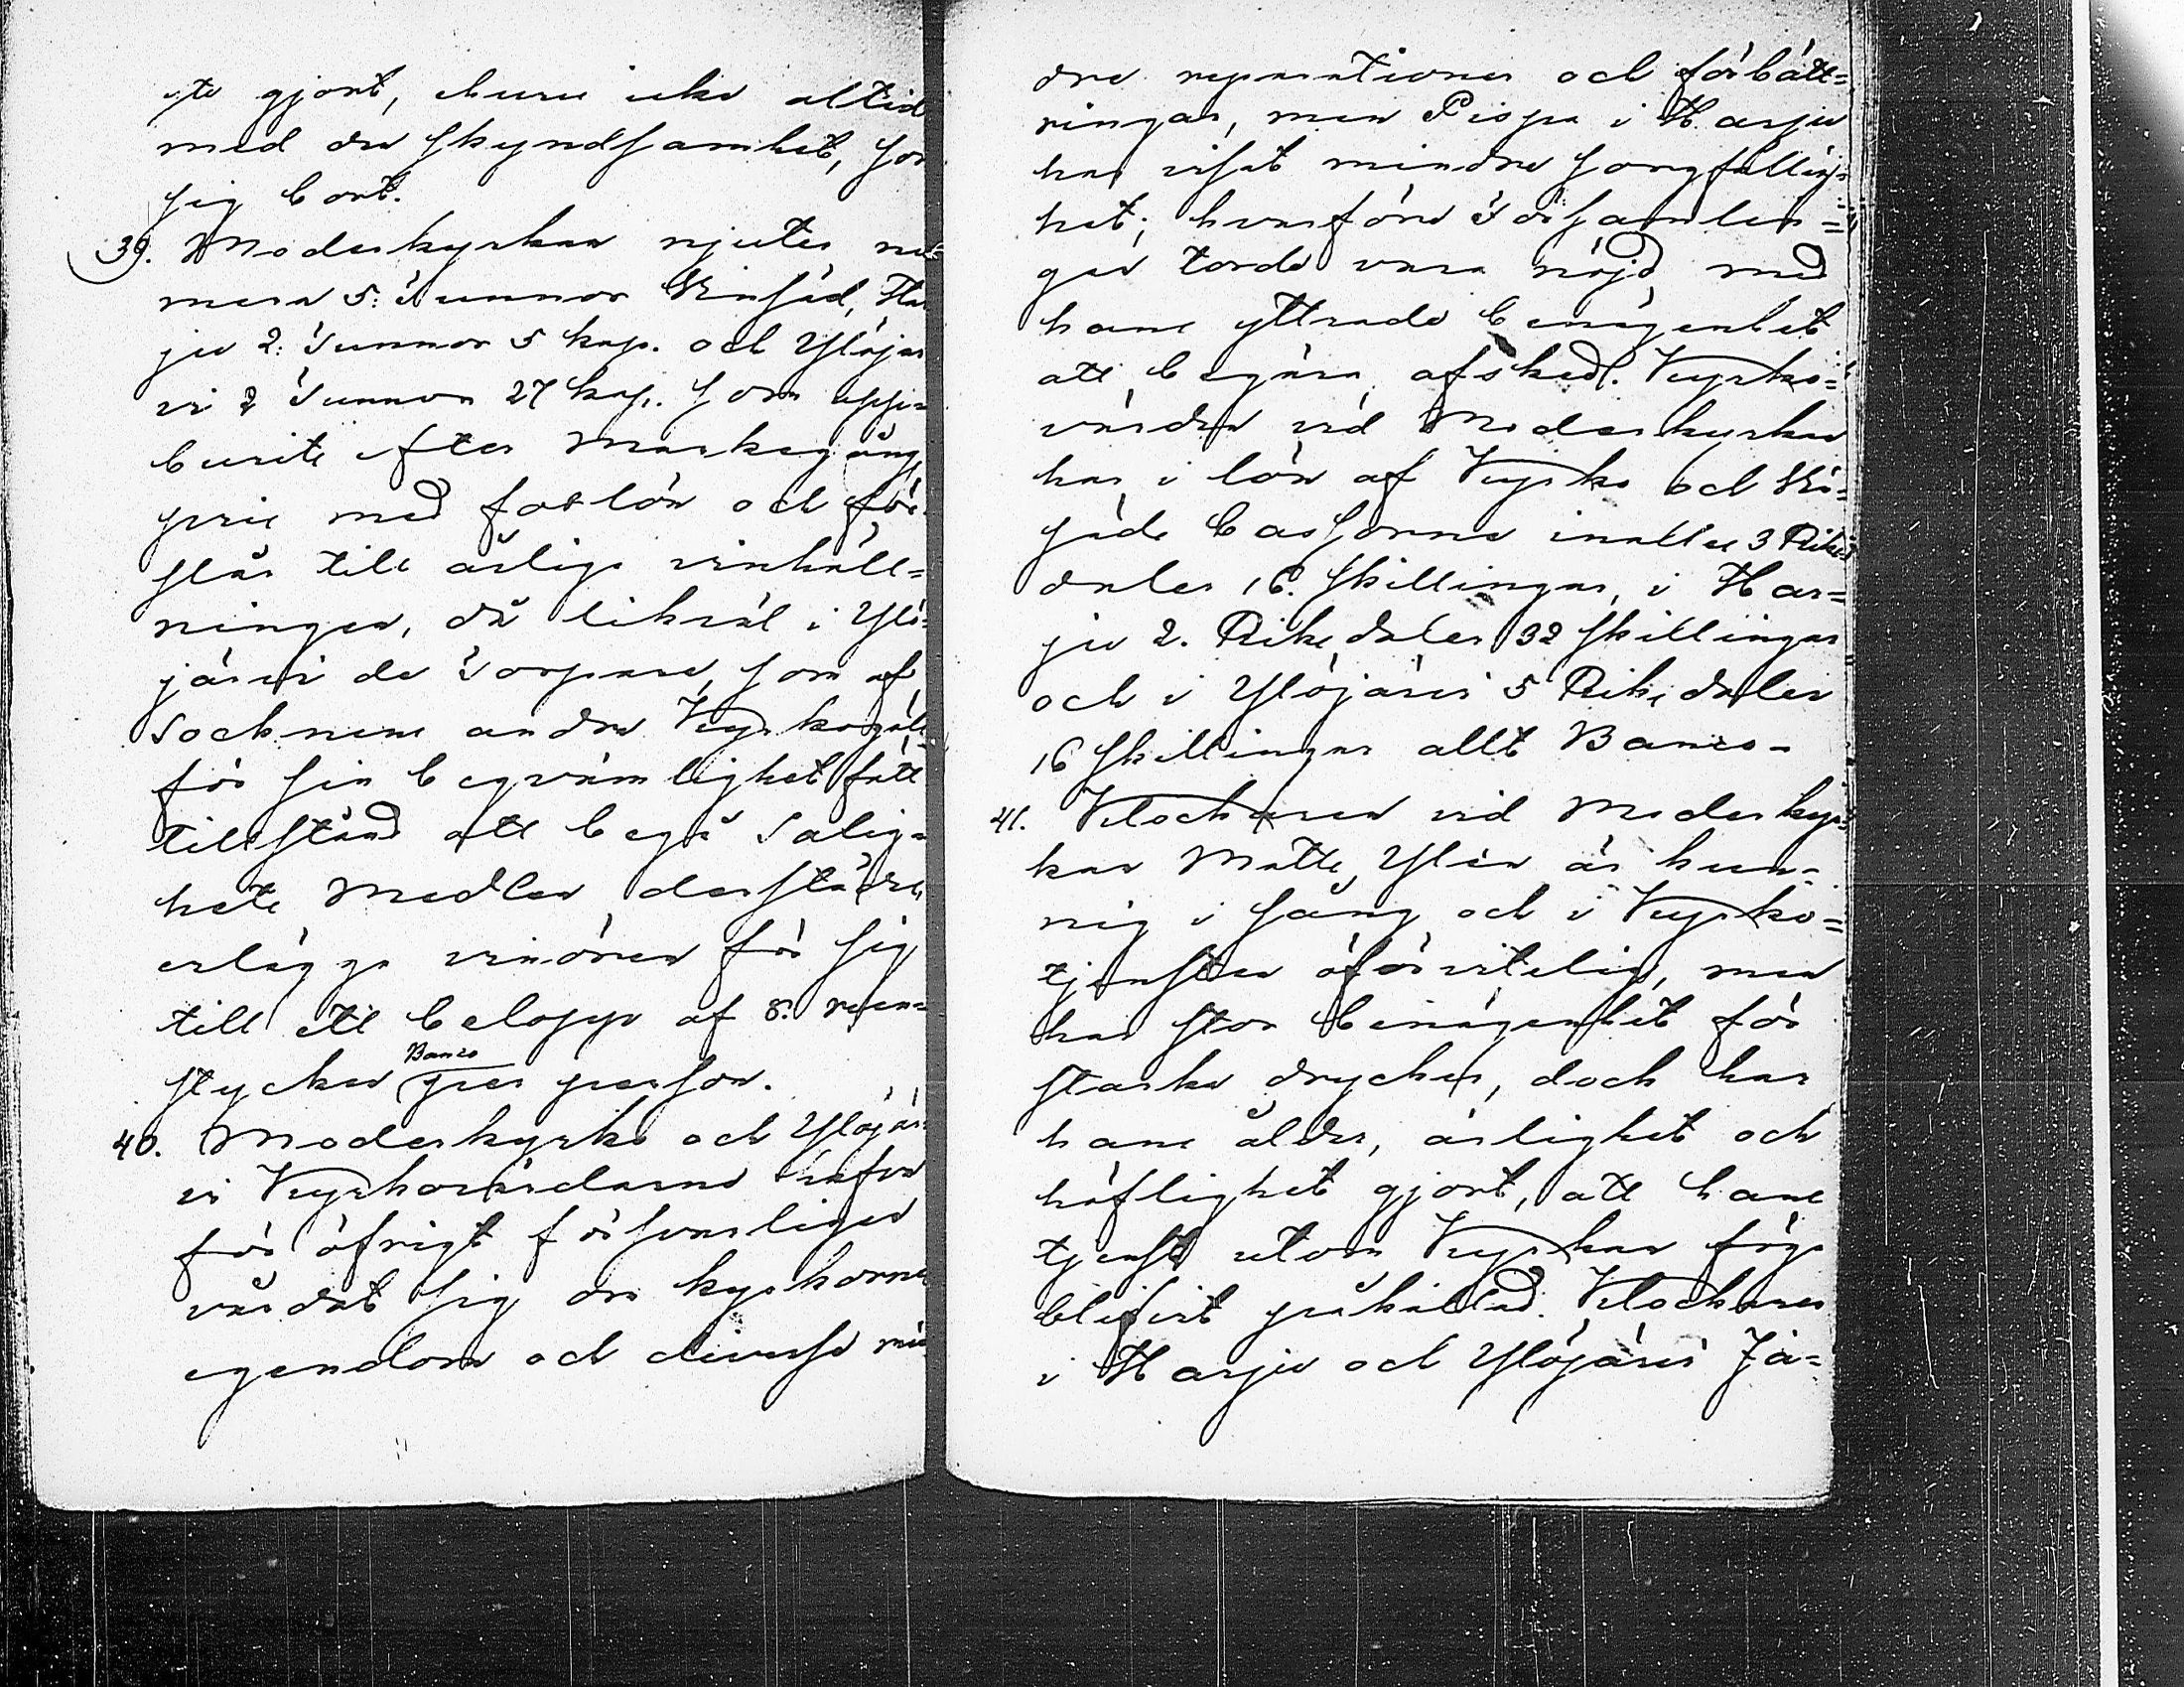 gjort, ehuru icke alltid
med den skyndsamhet, som
sig bort.
39. Moderkyrkan njuter nu=
mera 5: Tunnor Vinsäd, Har
ju 2: Tunnor 5 kap. och Ylöjär
vi 2 Tunnor 27 kap. som upp=
burits efter Markegång
pris med forlön och för
slår till årliga vinhåll=
ningen, då likväl i Ylö=
järvi de Torpare, som af
Socknens andra Kyrkogäll
för sin beqvämlighet fått
tillstånd att begå Salig=
hets Medlen derstädes
erlägga vinören för sig
till ett belopp af 8. runn=
stycken Banco per person.
40. Moderkyrko och Ylöjär
vi Kyrkovärdarne hafva
för öfrigt försvarligen
vårdat sig om kyrkornes
egendom och diverse min
dre reparationer och förbätt=
ringar, men Pispa i Harju
har visat mindre sorgfällig=
het; hvarföre Församlin=
gen torde vara nöjd med
hans yttrade benägenhet
att begära afsked. Kyrko=
värden vid Moderkyrkan
har i lön af Kyrko och Vin
säds Cassorna inalles 3 Riks
daler 16. Skillingar, i Har=
ju 2. Riksdaler 32 Skillingar
och i Ylöjärvi 5 Riksdaler
16 Skillingar allt Banco.
41. Klockaren vid Moderkyr=
kan Matts Ylén är kun=
nig i sång och i Kyrko=
tjensten oförvitelig, men
har stor benägenhet för
starka drycker, doch har
hans ålder, ärlighet och
höflighet gjort, att hans
tjenst utom Kyrkan föga
blifvit påkallad. Klockaren
i Harju och Ylöjärvi Ja=